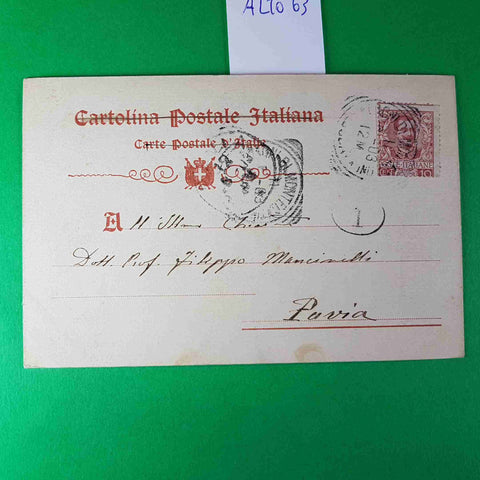 ALTO 63
Cartolina Postale Italiana
Carte Postale d'Italie
A
Ill.mo Chiar
Dott. Prof. Filippo Mancinelli
Pavia
1
12 M
POSTE ITALIANE
10